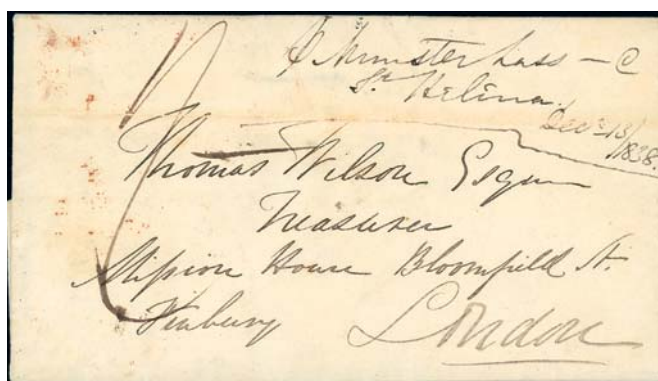 Munster Lass – C
St Helina
Decr 13/
1838.
Thomas Wilson Esqr
Treasurer
Mission House Bloomfield St.
Finbury
London